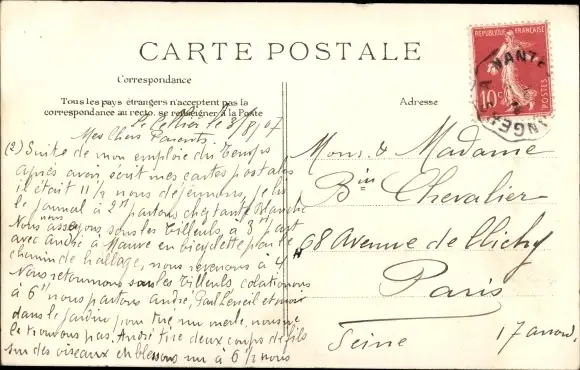 CARTE POSTALE
Correspondance
Tous les pays étrangers n'acceptent pas la
correspondance au recto, se renseigner à la Poste
Adresse
REPUBLIQUE FRANÇAISE
10c
POSTES
NANTE
ANGER
le 8/8/07
Mes Chers Parents
(2) Suite de mon emploie du Temps
Après avoir sout mes cartes postales
il était 11 h nous déjeunons, je lis
le journal à 2h partons chez tante Blanche
Nous nous asseyons sous les Tilleuls, à 3h part
avec André à Mauve en bicyclette par le
chemin de hallage, nous revenons à 4h
Nous retournons sous les Tilleuls, colationnons
à 6h nous partons André, Paul et moi
dans le jardin pour tué un merle, nous ne
le trouvons pas. André tire deux coups de fils
sur des oiseaux et blessons un à 6h nous
Mons. & Madame
Bin Chevalier
68 Avenue de Clichy
Paris
Seine 17 arrond.